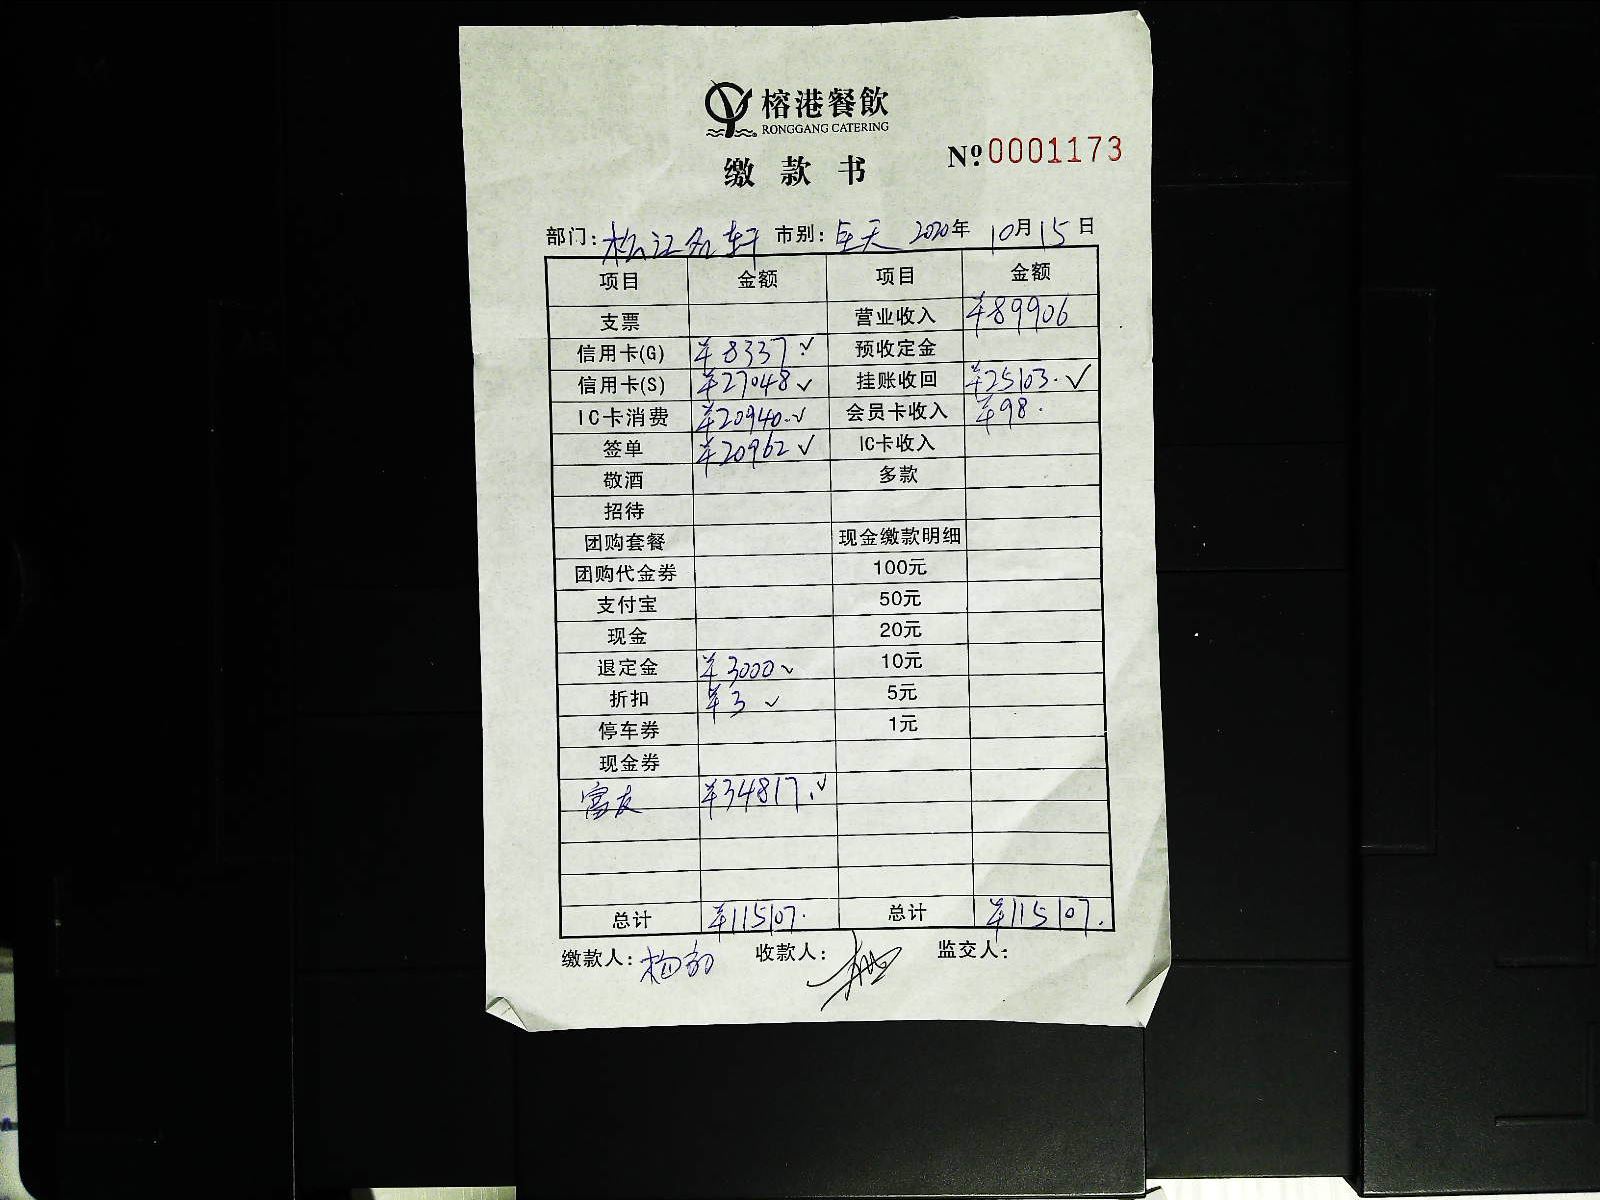 榕港餐飲
RONGGANG CATERING
缴款书
№ 0001173
部门: 松江名轩 市别: 全天 2020年 10月 15日
项目 金额 项目 金额
支票 营业收入 ¥89906
信用卡(G) ¥8337.✓ 预收定金
信用卡(S) ¥27048✓ 挂账收回 ¥25103.✓
IC卡消费 ¥20940.✓ 会员卡收入 ¥98.
签单 ¥20962✓ IC卡收入
敬酒 多款
招待
团购套餐 现金缴款明细
团购代金券 100元
支付宝 50元
现金 20元
退定金 ¥3000✓ 10元
折扣 ¥3 ✓ 5元
停车券 1元
现金券
富友 ¥34817.✓
总计 ¥115107. 总计 ¥115107.
缴款人: 收款人: 监交人: